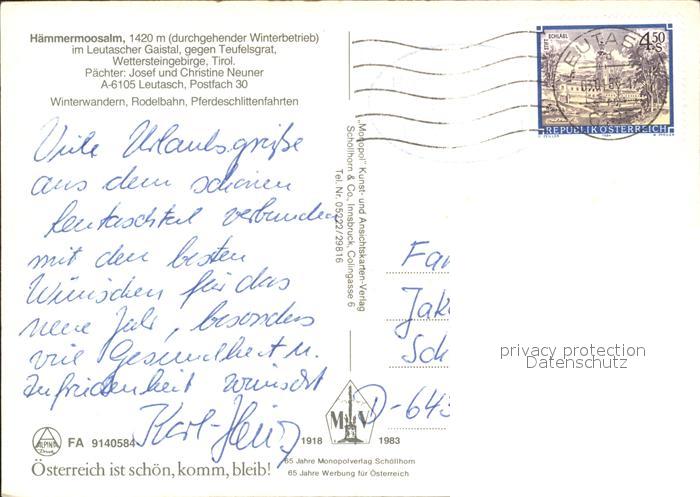 Hämmermoosalm, 1420 m (durchgehender Winterbetrieb)
im Leutascher Gaistal, gegen Teufelsgrat,
Wettersteingebirge, Tirol.
Pächter: Josef und Christine Neuner
A-6105 Leutasch, Postfach 30
Winterwandern, Rodelbahn, Pferdeschlittenfahrten
Viele Urlaubsgrüße
aus dem schönen
Leutaschtal verbunden
mit den besten
Wünschen für das
neue Jahr, besonders
viel Gesundheit u.
Zufriedenheit wünscht
Karl-Heinz
ALPINA
Druck
FA 9140584
Österreich ist schön, komm, bleib!
"Monopol" Kunst- und Ansichtskarten-Verlag
Schöllhorn & Co, Innsbruck, Colingasse 6
Tel. Nr. 05222/29816
1918 MV 1983
65 Jahre Monopolverlag Schöllhorn
65 Jahre Werbung für Österreich
STIFT SCHLÄGL
4.50
S
REPUBLIK ÖSTERREICH
LEUTAS
Fa
Jak
Sch
D-643
privacy protection
Datenschutz